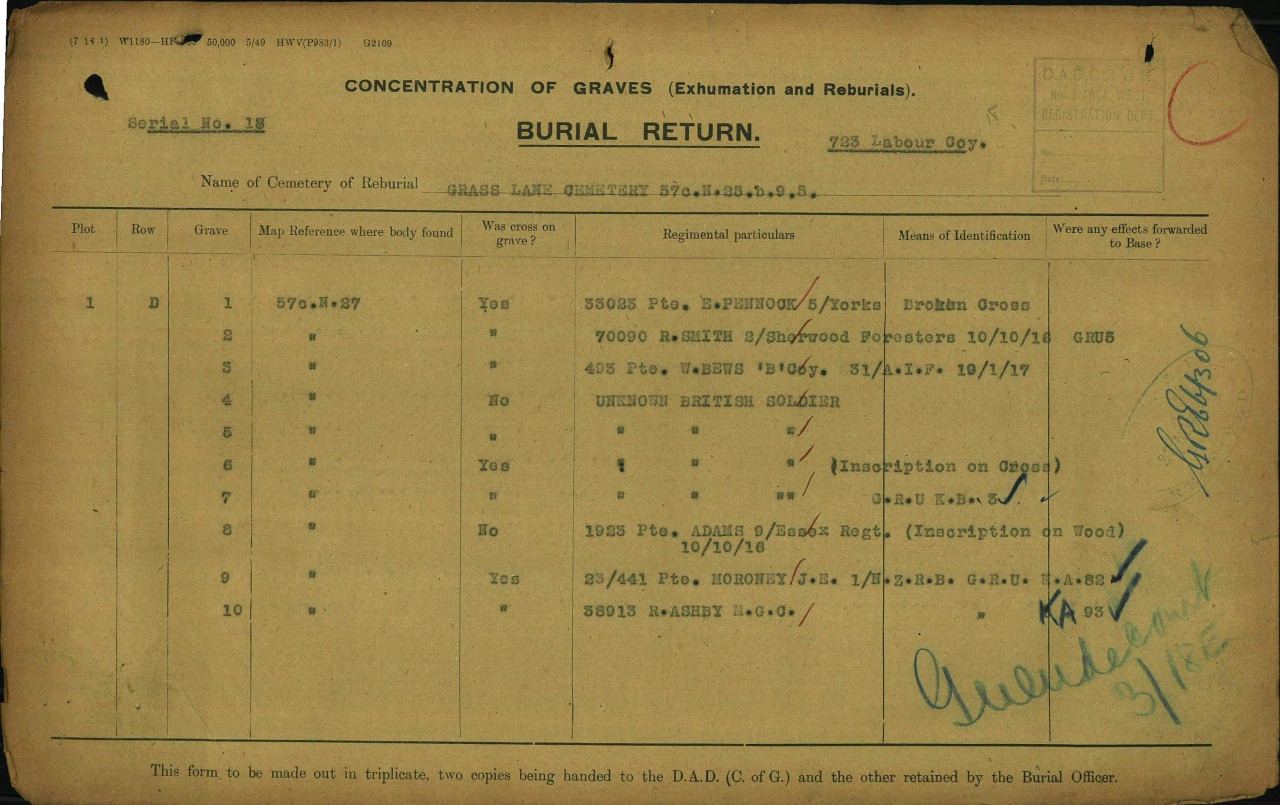 (7 18 1) W1189—HP 50,000 5/49 HWV(P983/1) G2109
CONCENTRATION OF GRAVES (Exhumation and Reburials).
D.A.D.
REGISTRATION DEPT
No.
Date
Serial No. 18
BURIAL RETURN.
723 Labour Coy.
Name of Cemetery of Reburial GRASS LANE CEMETERY 57c.N.25.b.9.5.
Plot Row Grave Map Reference where body found Was cross on grave? Regimental particulars Means of Identification Were any effects forwarded to Base?
1 D 1 57c.N.27 Yes 33023 Pte. E.PENNOCK 5/Yorks Broken Cross
2 " " 70090 R.SMITH 2/Sherwood Foresters 10/10/16 GRU5
3 " " 493 Pte. W.BEWS 'B'Coy. 31/A.I.F. 19/1/17
4 " No UNKNOWN BRITISH SOLDIER
5 " " " " "
6 " Yes " " " (Inscription on Cross)
7 " " " " "" G.R.U K.B. 3
8 " No 1923 Pte. ADAMS 9/Essex Regt. (Inscription on Wood)
10/10/16
9 " Yes 23/441 Pte. MORONEY J.E. 1/N.Z.R.B. G.R.U. K.A.82
10 " " 38913 R.ASHBY M.G.C. " KA 93
Gueudecourt
3/18E
This form to be made out in triplicate, two copies being handed to the D.A.D. (C. of G.) and the other retained by the Burial Officer.